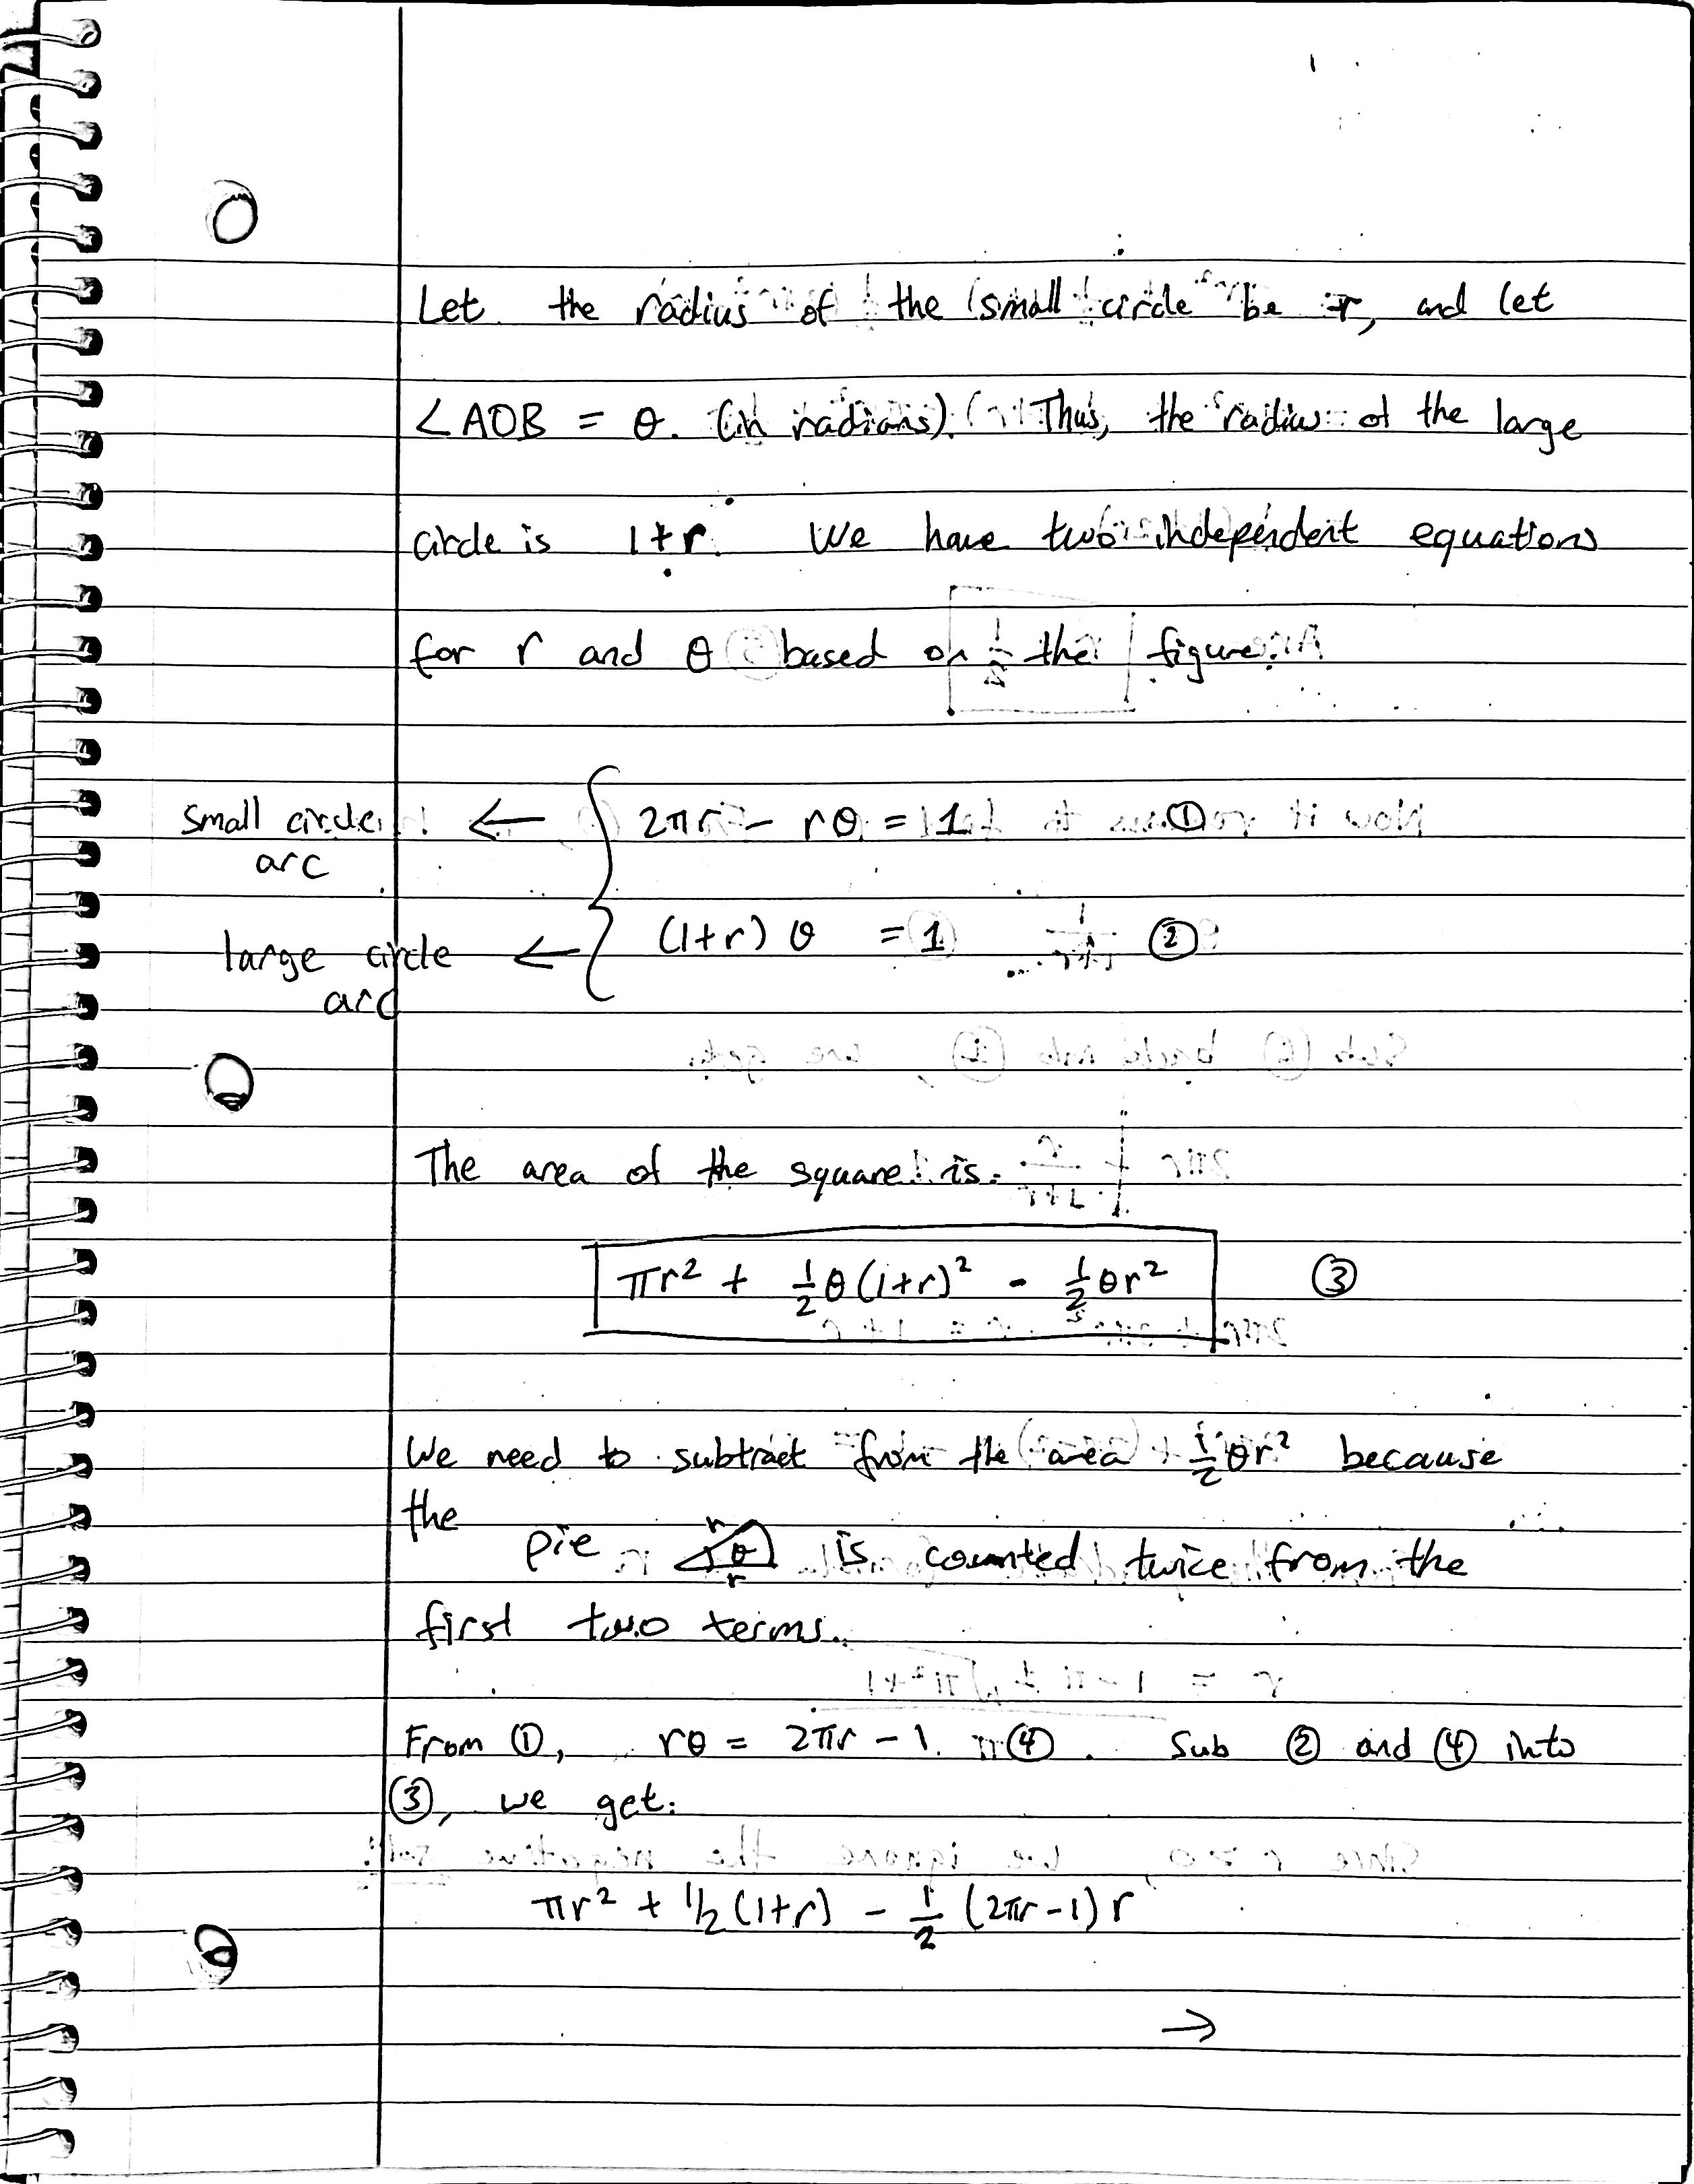 Let the radius of the small circle be r, and let
∠AOB = θ. (in radians). Thus, the radius of the large
circle is 1+r. We have two independent equations
for r and θ based on the figure:
small circle arc ← { 2πr - rθ = 1 ①
large circle arc ← { (1+r) θ = 1 ②
The area of the square is:
πr² + ½θ(1+r)² - ½θr² ③
We need to subtract from the area ½θr² because
the
pie r θ r is counted twice from the
first two terms.
From ①, rθ = 2πr - 1. ④. Sub ② and ④ into
③, we get:
πr² + 1/2 (1+r) - ½ (2πr - 1) r
→